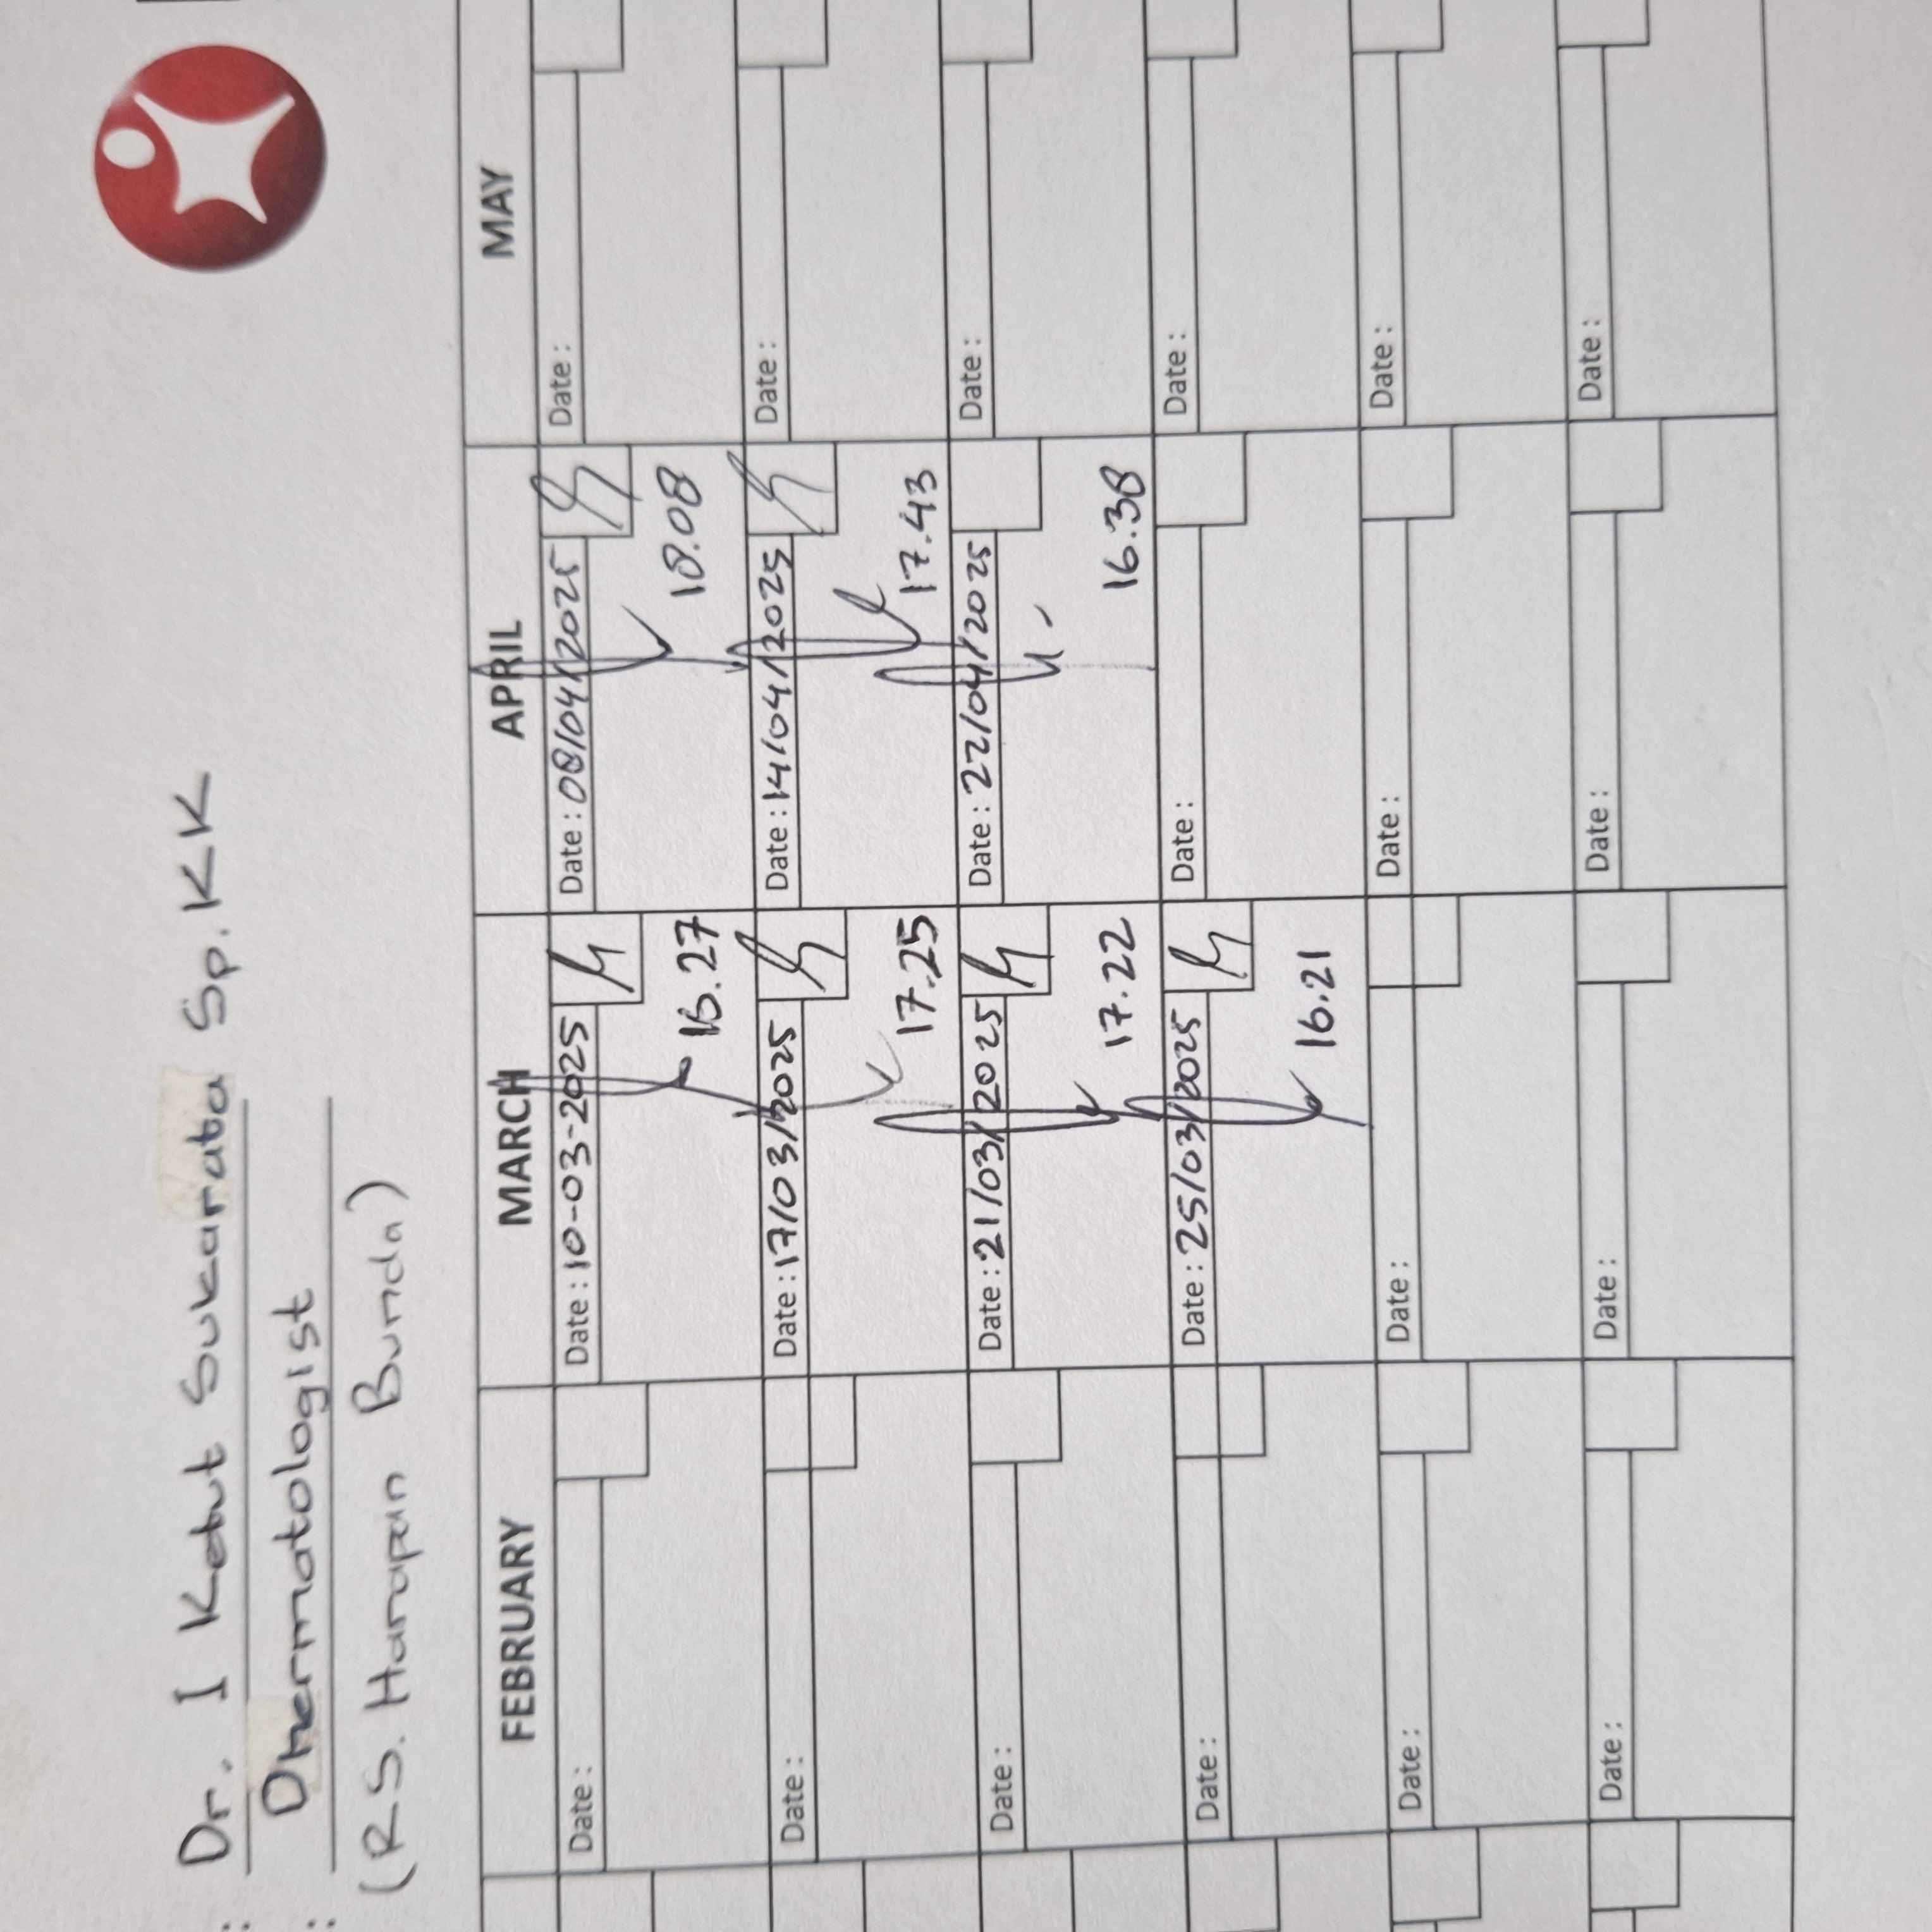 : Dr. I Ketut Sukarata Sp.KK
: Dhermatologist
(R.S. Harapan Bunda)
FEBRUARY MARCH APRIL MAY
Date : Date : 10-03-2025 Date : 08/04/2025 Date :
16.27 18.08
Date : Date : 17/03/2025 Date : 14/04/2025 Date :
17.25 17.43
Date : Date : 21/03/2025 Date : 22/04/2025 Date :
17.22 16.38
Date : Date : 25/03/2025 Date : Date :
16.21
Date : Date : Date : Date :
Date : Date : Date : Date :